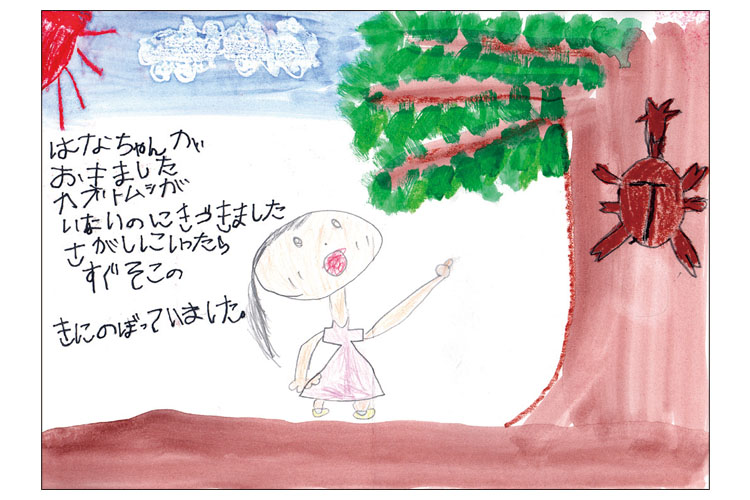 はなちゃんが
おきました
カブトムシが
いないのにきづきました
さがしにいったら
すぐそこの
きにのぼっていました。